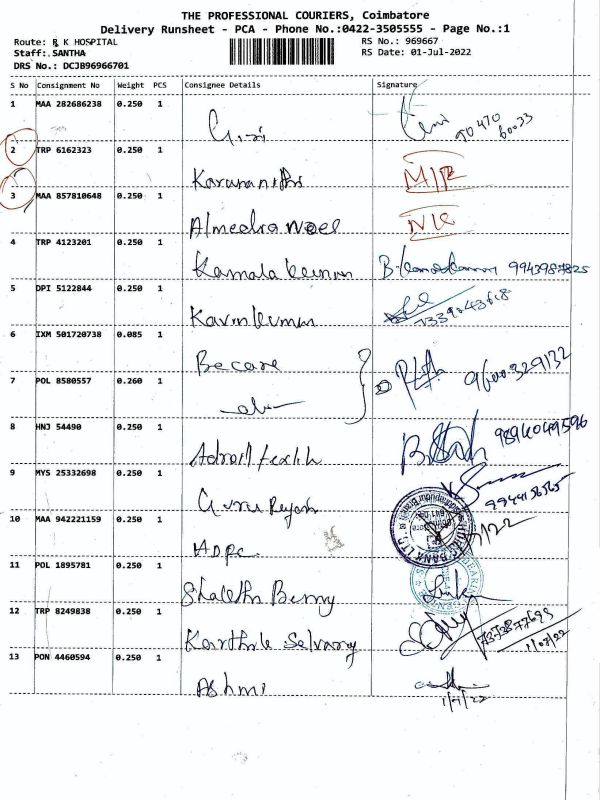 THE PROFESSIONAL COURIERS, Coimbatore
Delivery Runsheet - PCA - Phone No.:0422-3505555 - Page No.:1
Route: R K HOSPITAL RS No.: 969667
Staff:.SANTHA RS Date: 01-Jul-2022
DRS No.: DCJB96966701
S No Consignment No Weight PCS Consignee Details Signature
1 MAA 282686238 0.250 1
Giri 90470
60033
2 TRP 6162323 0.250 1
Karunanithi
3 MAA 857810648 0.250 1
Almeelra Noel
4 TRP 4123201 0.250 1
Kamala kannan 9943987825
5 DPI 5122844 0.250 1
Kavinkumar 7339043618
6 IXM 501720738 0.085 1
Becare
7 POL 8580557 0.260 1
9600329132
8 HNJ 54490 0.250 1
9894049596
9 MYS 25332698 0.250 1
Guru 9944156565
10 MAA 942221159 0.250 1
HDFC
11 POL 1895781 0.250 1
Benny
12 TRP 8249838 0.250 1
7373877693
Karthik Selvaraj 1/07/22
13 PON 4460594 0.250 1
Ashmi
1/7/22